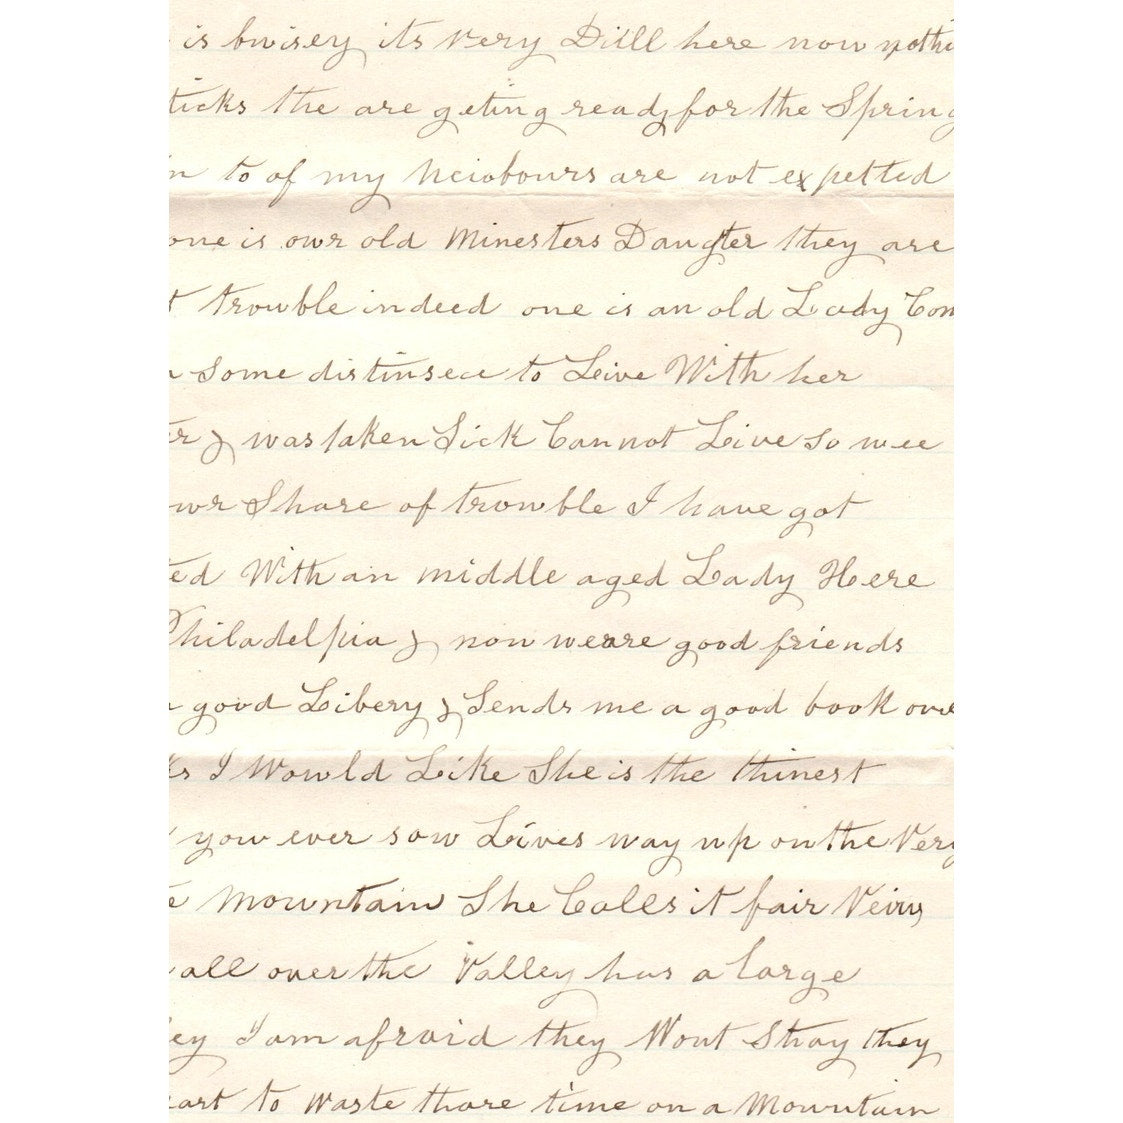 is bwisey its very Dull here now nothi
ticks the are geting ready for the Spring
n to of my Neiobours are not expetted
one is owr old Minesters Daugter they are
t trowble indeed one is an old Lady Com
n some distinsece to Leive With her
er & was taken Sick Cannot Live So wee
owr Share of trowble I have got
ted With an middle aged Lady Here
Philadelpia & now weare good friends
a good Libery & Sends me a good book ove
ks I Wowld Like She is the thinest
you ever sow Lives way up on the Very
e Mowntain She Calls it fair Veiw
all over the Valley has a large
ey I am afraid they Wont Stay they
art to Waste thare time on a Mowntain